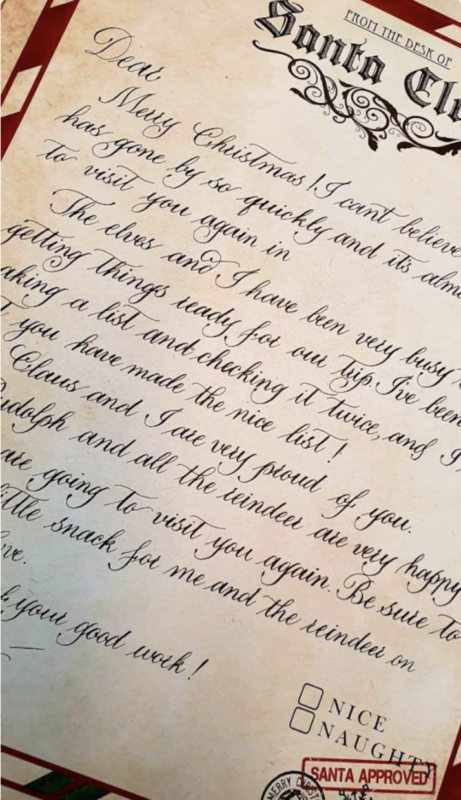 FROM THE DESK OF
Santa
Dear
Merry Christmas! I can't believe
has gone by so quickly and it's
to visit you again in
The elves and I have been very busy
getting things ready for our trip. I've been
aking a list and checking it twice, and I
you have made the nice list!
Claus and I are very proud of you.
udolph and all the reindeer are very happy
are going to visit you again. Be sure to
ittle snack for me and the reindeer on
ve.
your good work!
NICE
NAUGHTY
SANTA APPROVED
MERRY